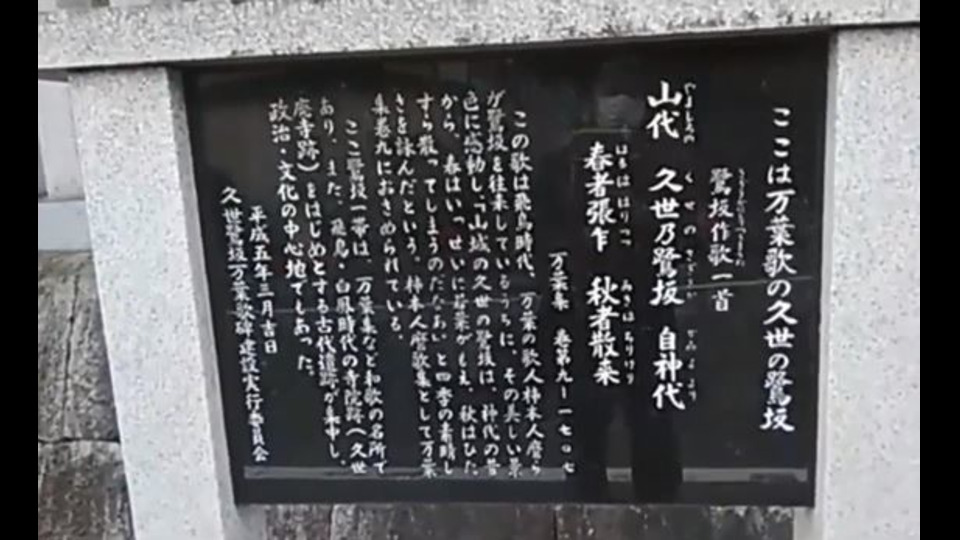 ここは万葉歌の久世の鷺坂
鷺坂作歌一首
山代 久世乃鷺坂 自神代
やましろの くせのさぎさか かみよより
春者張乍 秋者散来
はるははりつつ あきはちりけり
万葉集 巻第九ー一七〇七
この歌は飛鳥時代、万葉の歌人柿本人麿ら
が鷺坂を往来しているうちに、その美しい景
色に感動し、「山城の久世の鷺坂は、神代の昔
から、春はいっせいに若葉がもえ、秋はひた
すら散ってしまうのだなあ」と四季の素晴し
さを詠んだという。柿本人麿歌集として万葉
集巻九におさめられている。
ここ鷺坂一帯は、万葉集など和歌の名所で
あり、また、飛鳥・白鳳時代の寺院跡(久世
廃寺跡)をはじめとする古代遺跡が集中し、
政治・文化の中心地でもあった。
平成五年三月吉日
久世鷺坂万葉歌碑建設実行委員会